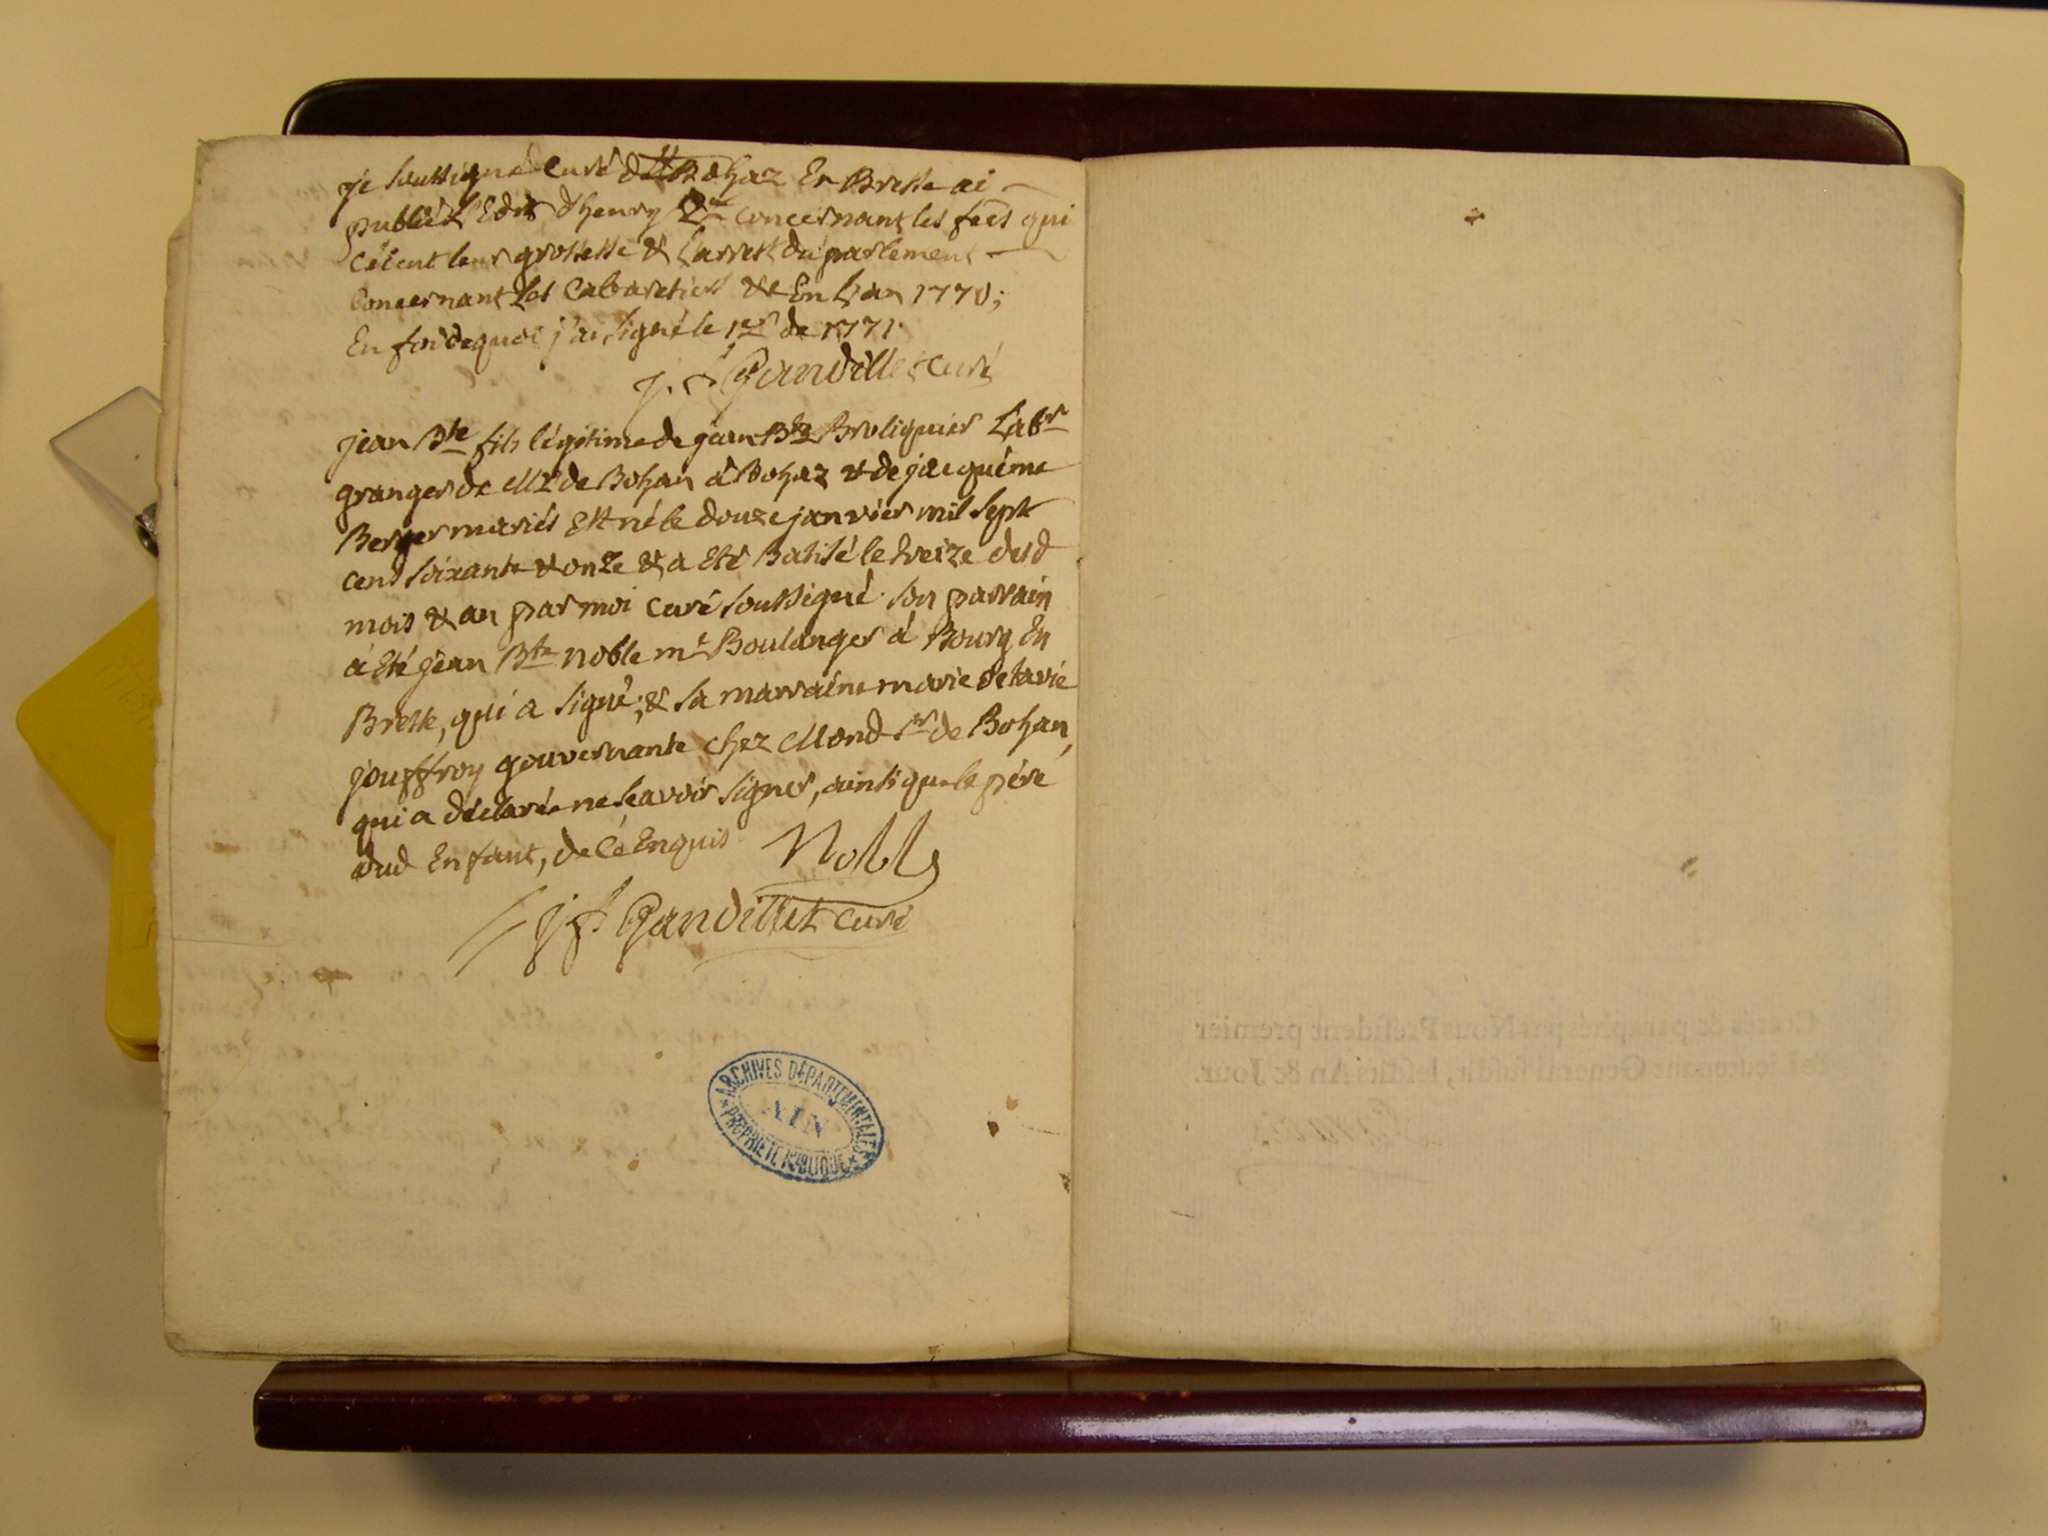 je soussigné curé de Bohaz En Bresse ai
publié L'Edit d'henry 2 concernant les fees qui
Célent leur grossesse & L'arrest du parlement
Concernant Les Cabaretiers &c En L'an 1770;
En foi de quoi j'ai signé le 1er de 1771.
Gandillet curé
jean Bte fils légitime de jean Bte Broliquier Labr
granger de Mr de Bohan à Bohaz & de jacquéme
Berger mariés Est né le douze janvier mil sept
cent soixante & onze & a Eté Batisé le treize dud
mois & an par moi curé soussigné. son parrain
à Eté jean Bte noble me Boulanger à Bourg En
Bresse, qui a signé; & sa marraine marie
jouffroy gouvernante chez Mond Sr de Bohan,
qui a déclaré ne scavoir signer, ainsi que le pére
dud Enfant, de Cé Enquis Noble
Gandillet curé
ARCHIVES DÉPARTEMENTALES
AIN
PROPRIÉTÉ PUBLIQUE
Cottés & paraphés par Nous Président premier
& Lieutenant General susdit, lesdits An & Jour.